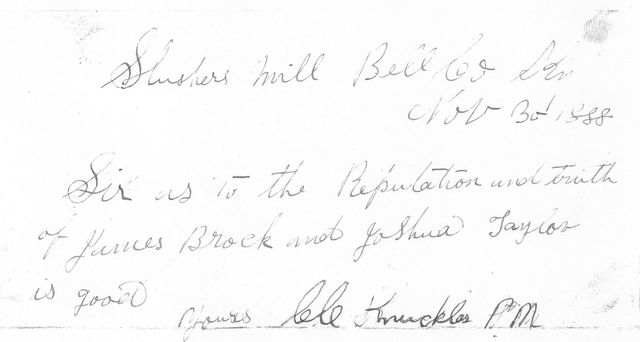 Slushers Mill Bell Co Ky
Nov 30 1888
Sir as to the Reputation and truth
of James Brock and Joshua Taylor
is good
Yours Knuckles P.M